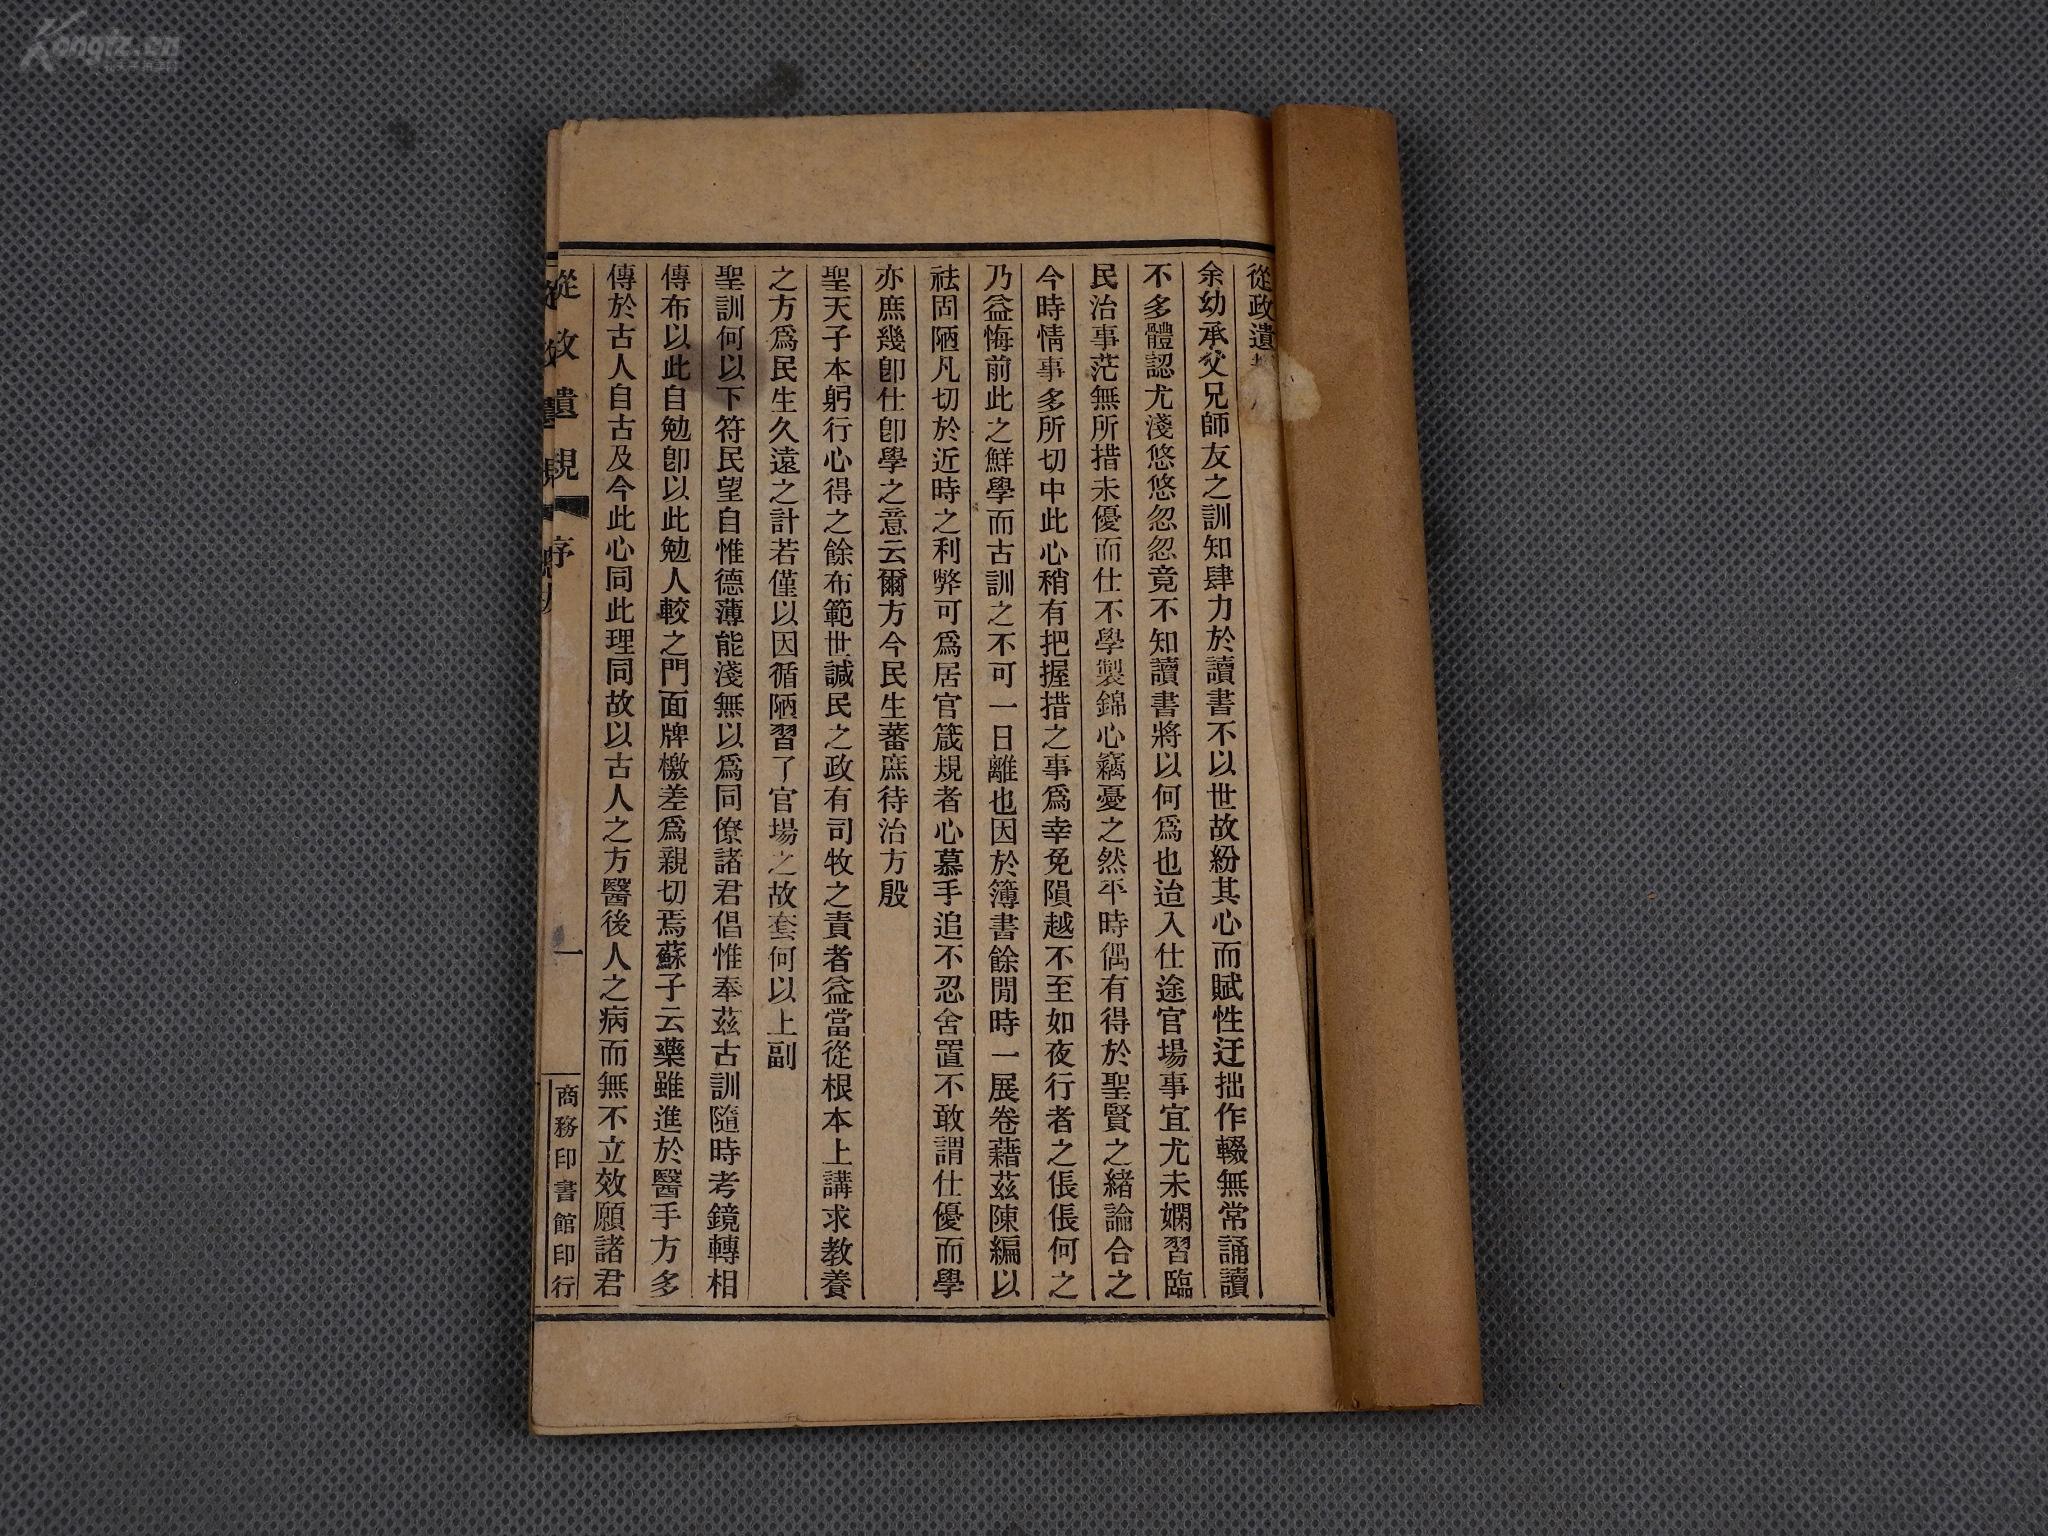 從政遺
余幼承父兄師友之訓知肆力於讀書不以世故紛其心而賦性迂拙作輟無常誦讀
不多體認尤淺悠悠忽忽竟不知讀書將以何爲也迨入仕途官場事宜尤未嫻習臨
民治事茫無所措未優而仕不學製錦心竊憂之然平時偶有得於聖賢之緒論合之
今時情事多所切中此心稍有把握措之事爲幸免隕越不至如夜行者之倀倀何之
乃益悔前此之鮮學而古訓之不可一日離也因於簿書餘閒時一展卷藉茲陳編以
祛固陋凡切於近時之利弊可爲居官箴規者心慕手追不忍舍置不敢謂仕優而學
亦庶幾卽仕卽學之意云爾方今民生蕃庶待治方殷
聖天子本躬行心得之餘布範世諴民之政有司牧之責者益當從根本上講求教養
之方爲民生久遠之計若僅以因循陋習了官場之故套何以上副
聖訓何以下符民望自惟德薄能淺無以爲同僚諸君倡惟奉茲古訓隨時考鏡轉相
傳布以此自勉卽以此勉人較之門面牌檄差爲親切焉蘇子云藥雖進於醫手方多
傳於古人自古及今此心同此理同故以古人之方醫後人之病而無不立效願諸君
從政遺規 序
一
商務印書館印行
Kongfz.cn